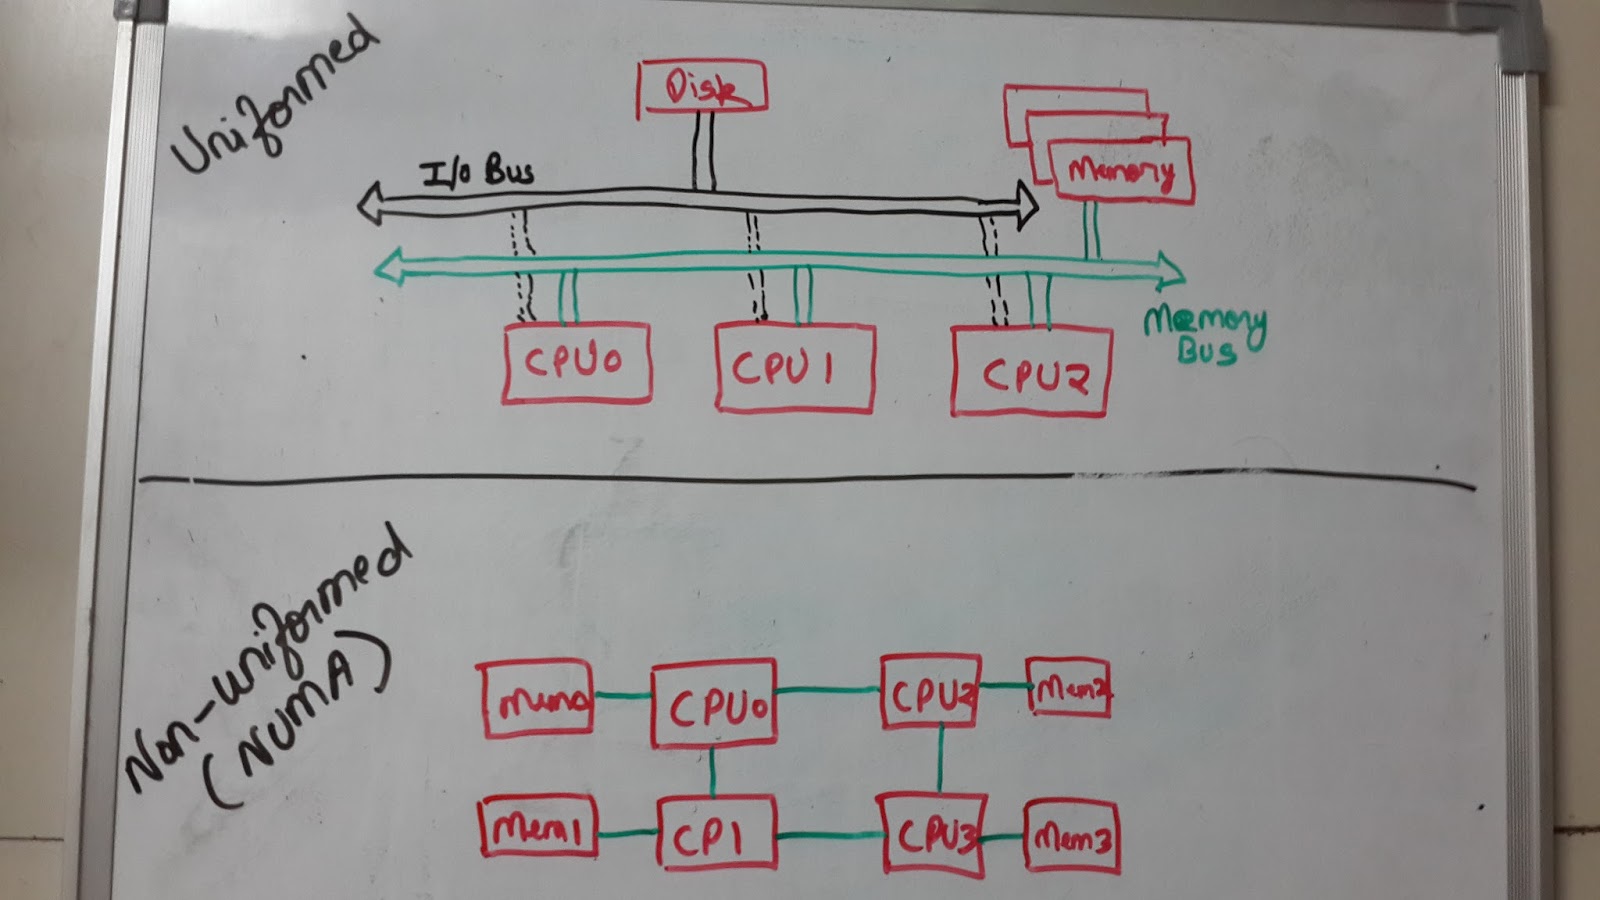 Uniformed
Disk
I/o Bus
Memory
Memory
Bus
CPU0
CPU1
CPU2
Non-uniformed
(NUMA)
Mem0
CPU0
CPU2
Mem2
Mem1
CP1
CPU3
Mem3